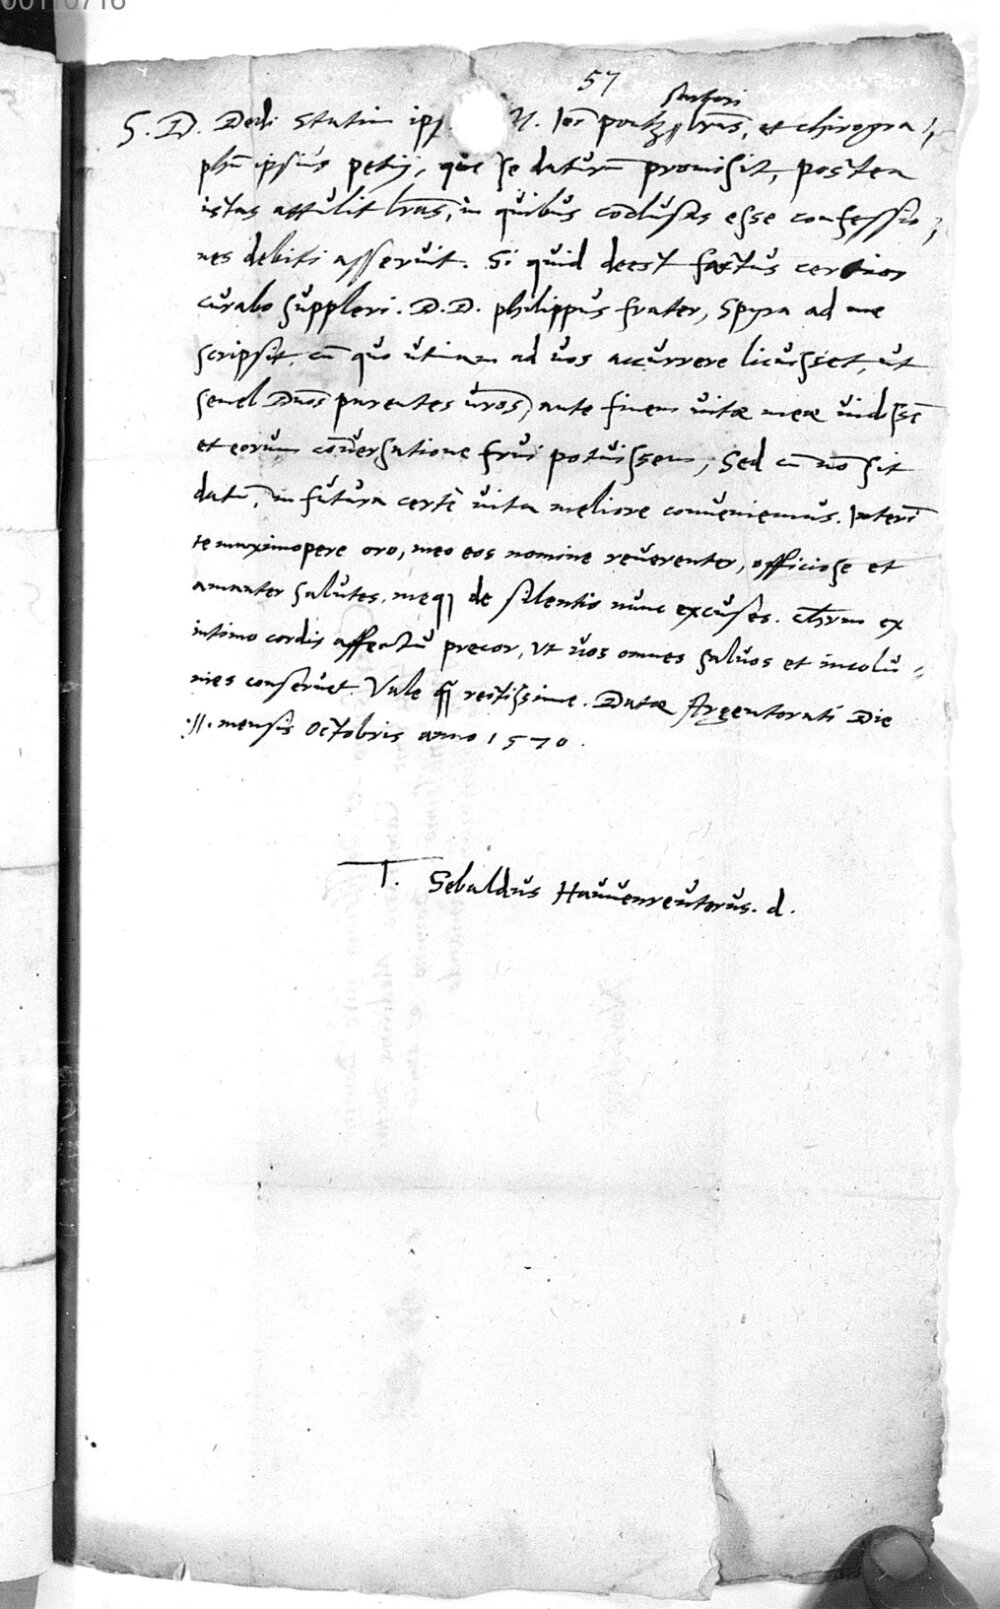 57
sartori
S. D. Dedi statim ip N. Ior poatz lras, et chirogra
phū ipsius petij, que se daturū promisit, postea
istas attulit lras, in quibus conclusas esse confessio
nes debiti asseruit. Si quid deest factus certior
curabo suppleri. D. D. philippus frater, Spyra ad me
scripsit, cū quo utinam ad uos accurrere licuisset, ut
semel Dnos parentes uros, ante finem uitæ meæ uidissē
et eorum conuersatione frui potuissem, Sed cū nō sit
datū, in futura certè uita meliore conueniemus. Interī
te maximopere oro, meo eos nomine reuerenter, officiose et
amanter salutes, meq de silentio nunc excuses. Chrm ex
intimo cordis affectu precor, ut uos omnes saluos et incolu
mes conseruet. Vale q rectissime. Datæ Argentorati Die
.11. mensis Octobris anno 1570.
T. Sebaldus Hauuenreuterus. d.